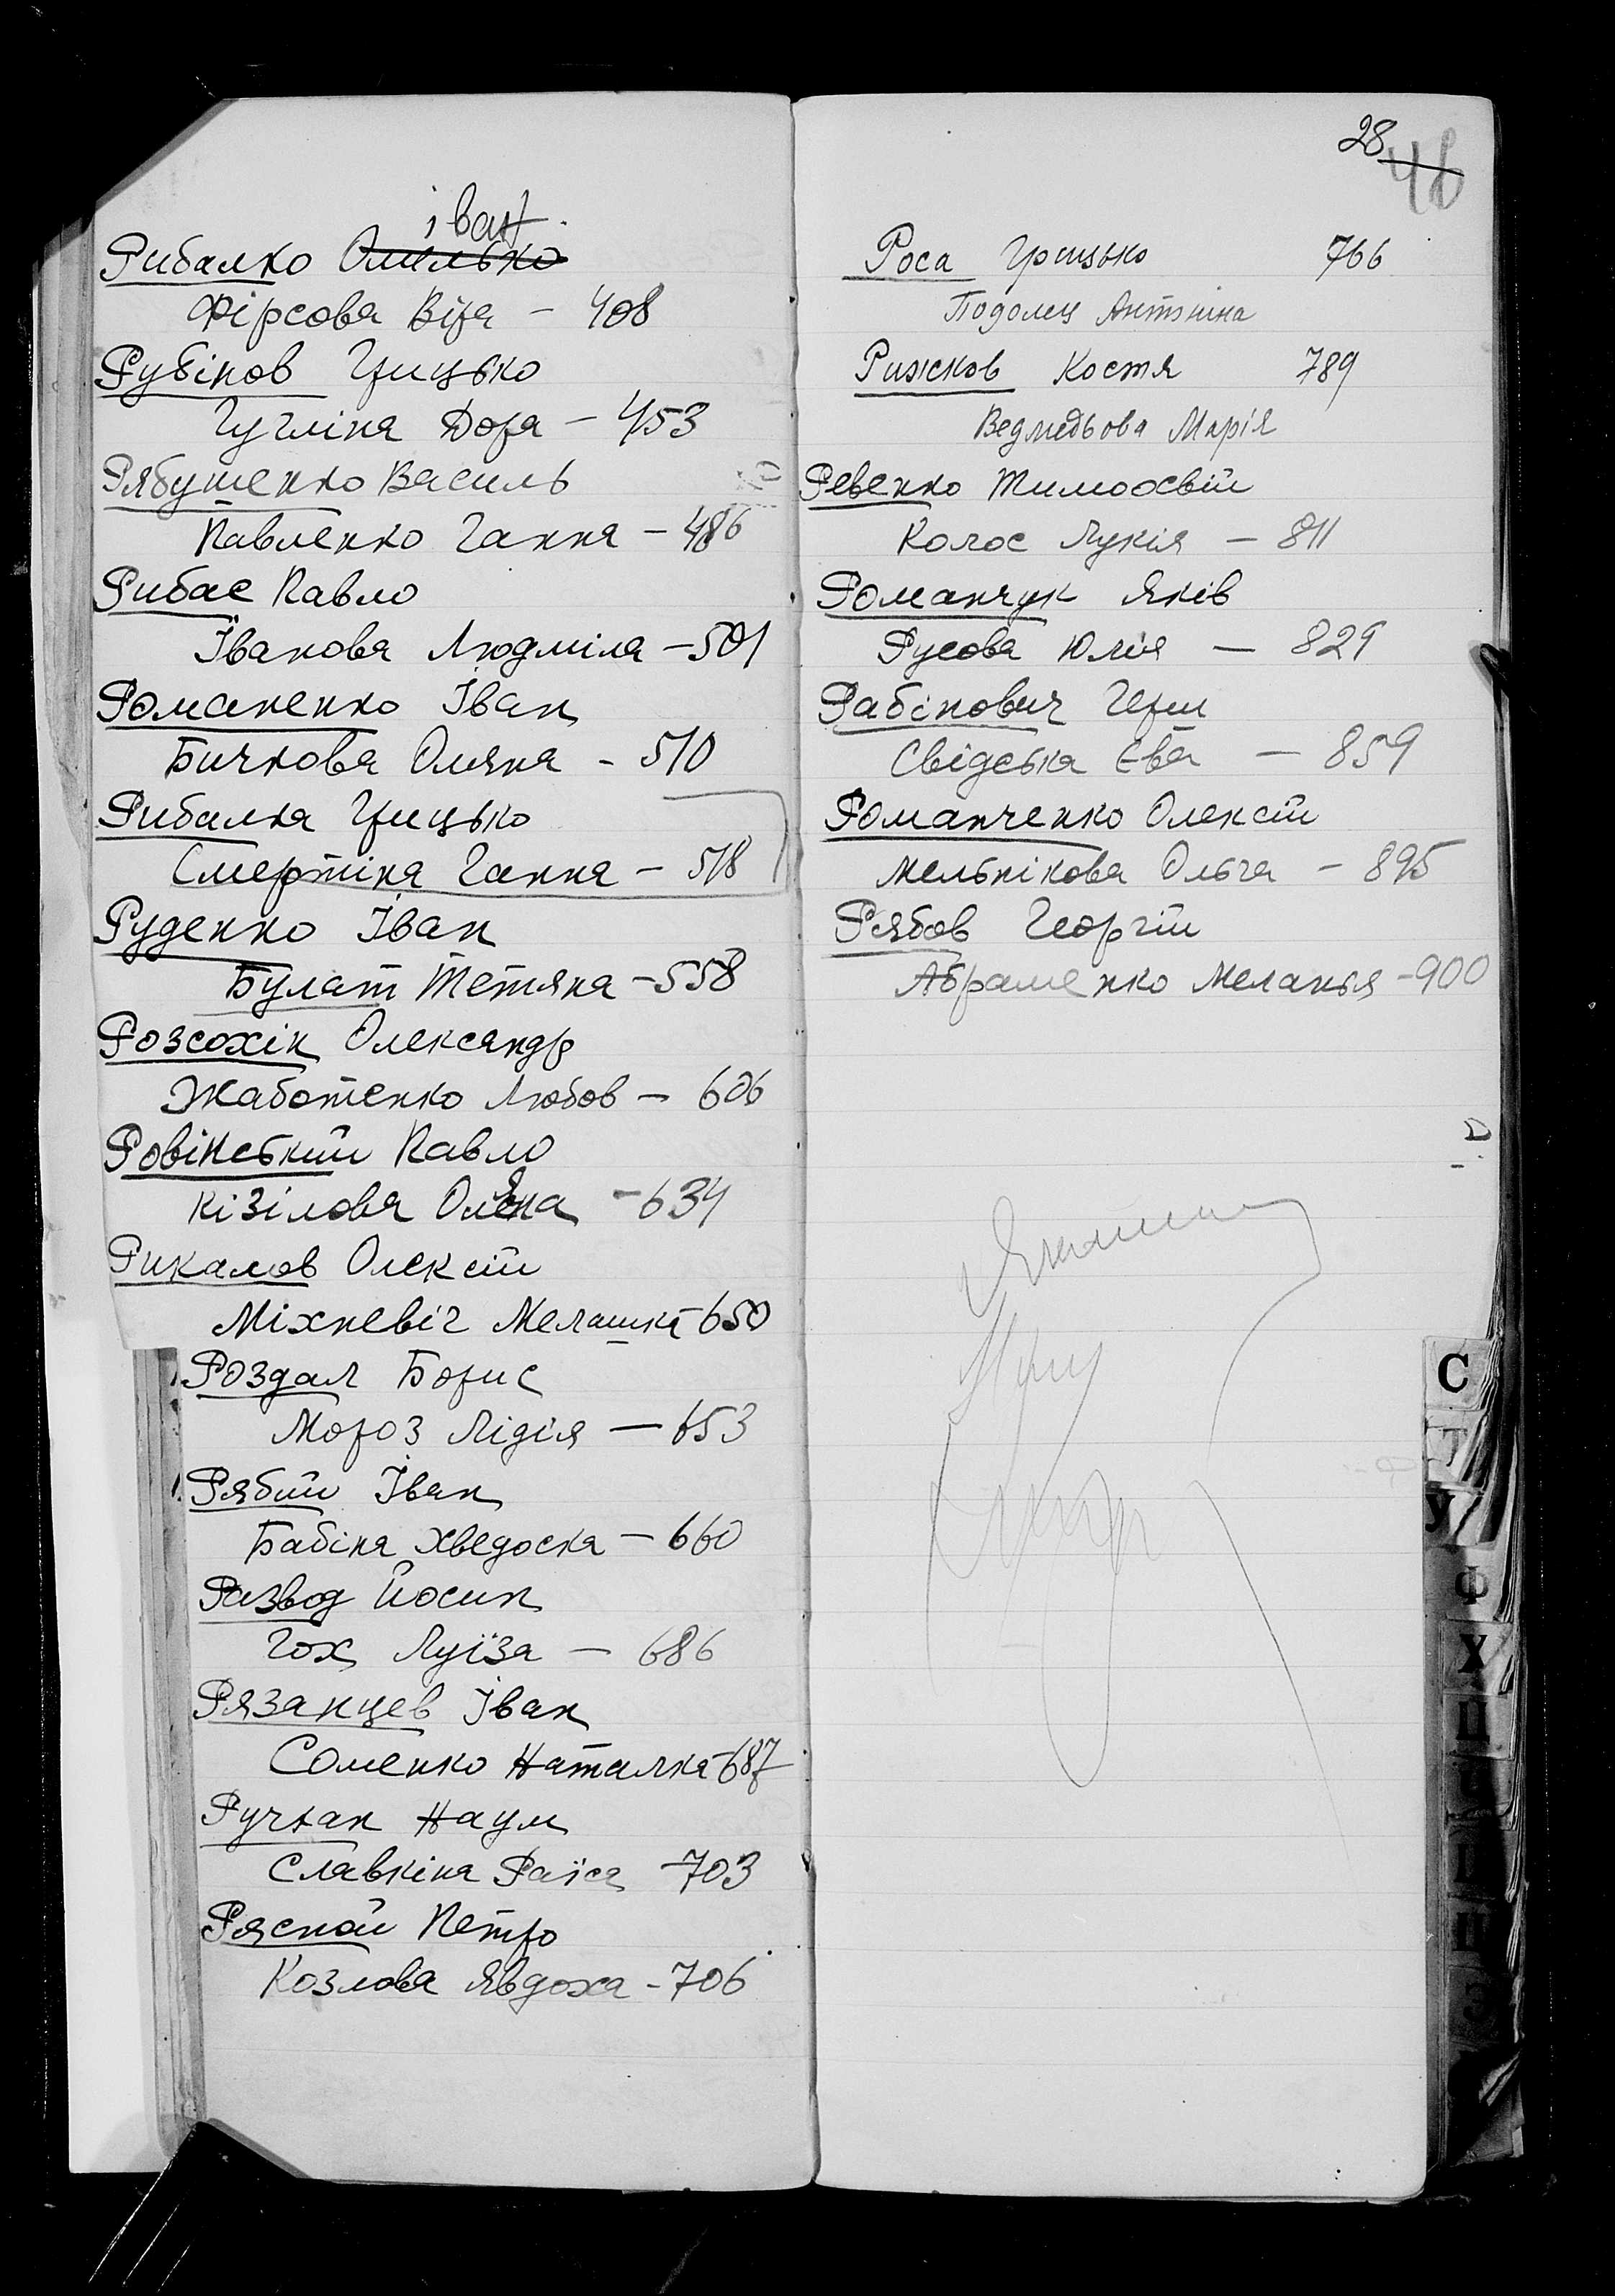 іван
Рибалко Омелько
Фірсова Віра – 408
Рубінов Грицько
Гугліна Дора – 453
Рябушенко Василь
Павленко Ганна – 486
Рибас Павло
Іванова Людміла – 501
Романенко Іван
Бичкова Оляна – 510
Рибалка Грицько
Смертіна Ганна – 518
Руденко Іван
Булат Тетяна – 558
Розсохін Олександр
Жаботенко Любов – 606
Ровінський Павло
Кізілова Олена – 634
Рикалов Олексій
Міхневіч Мелашка – 650
Роздал Борис
Мороз Лідія – 653
Рябий Іван
Бабіна Хведоска – 660
Развод Йосип
Гох Луїза – 686
Рязанцев Іван
Соменко Наталка – 687
Ручкан Наум
Славкіна Раїса – 703
Рясной Петро
Козлова Явдоха – 706
28
48
Роса Грицько 766
Подолец Антоніна
Рижков Костя 789
Ведмедьова Марія
Ревенко Тимофій
Колос Лукія – 811
Романчук Яків
Русова Юлія – 829
Рабінович Герш
Свідська Єва – 859
Романченко Олексій
Мельнікова Ольга – 895
Рябов Георгій
Абраменко Меланья – 900
С
Т
У
Ф
Х
Ц